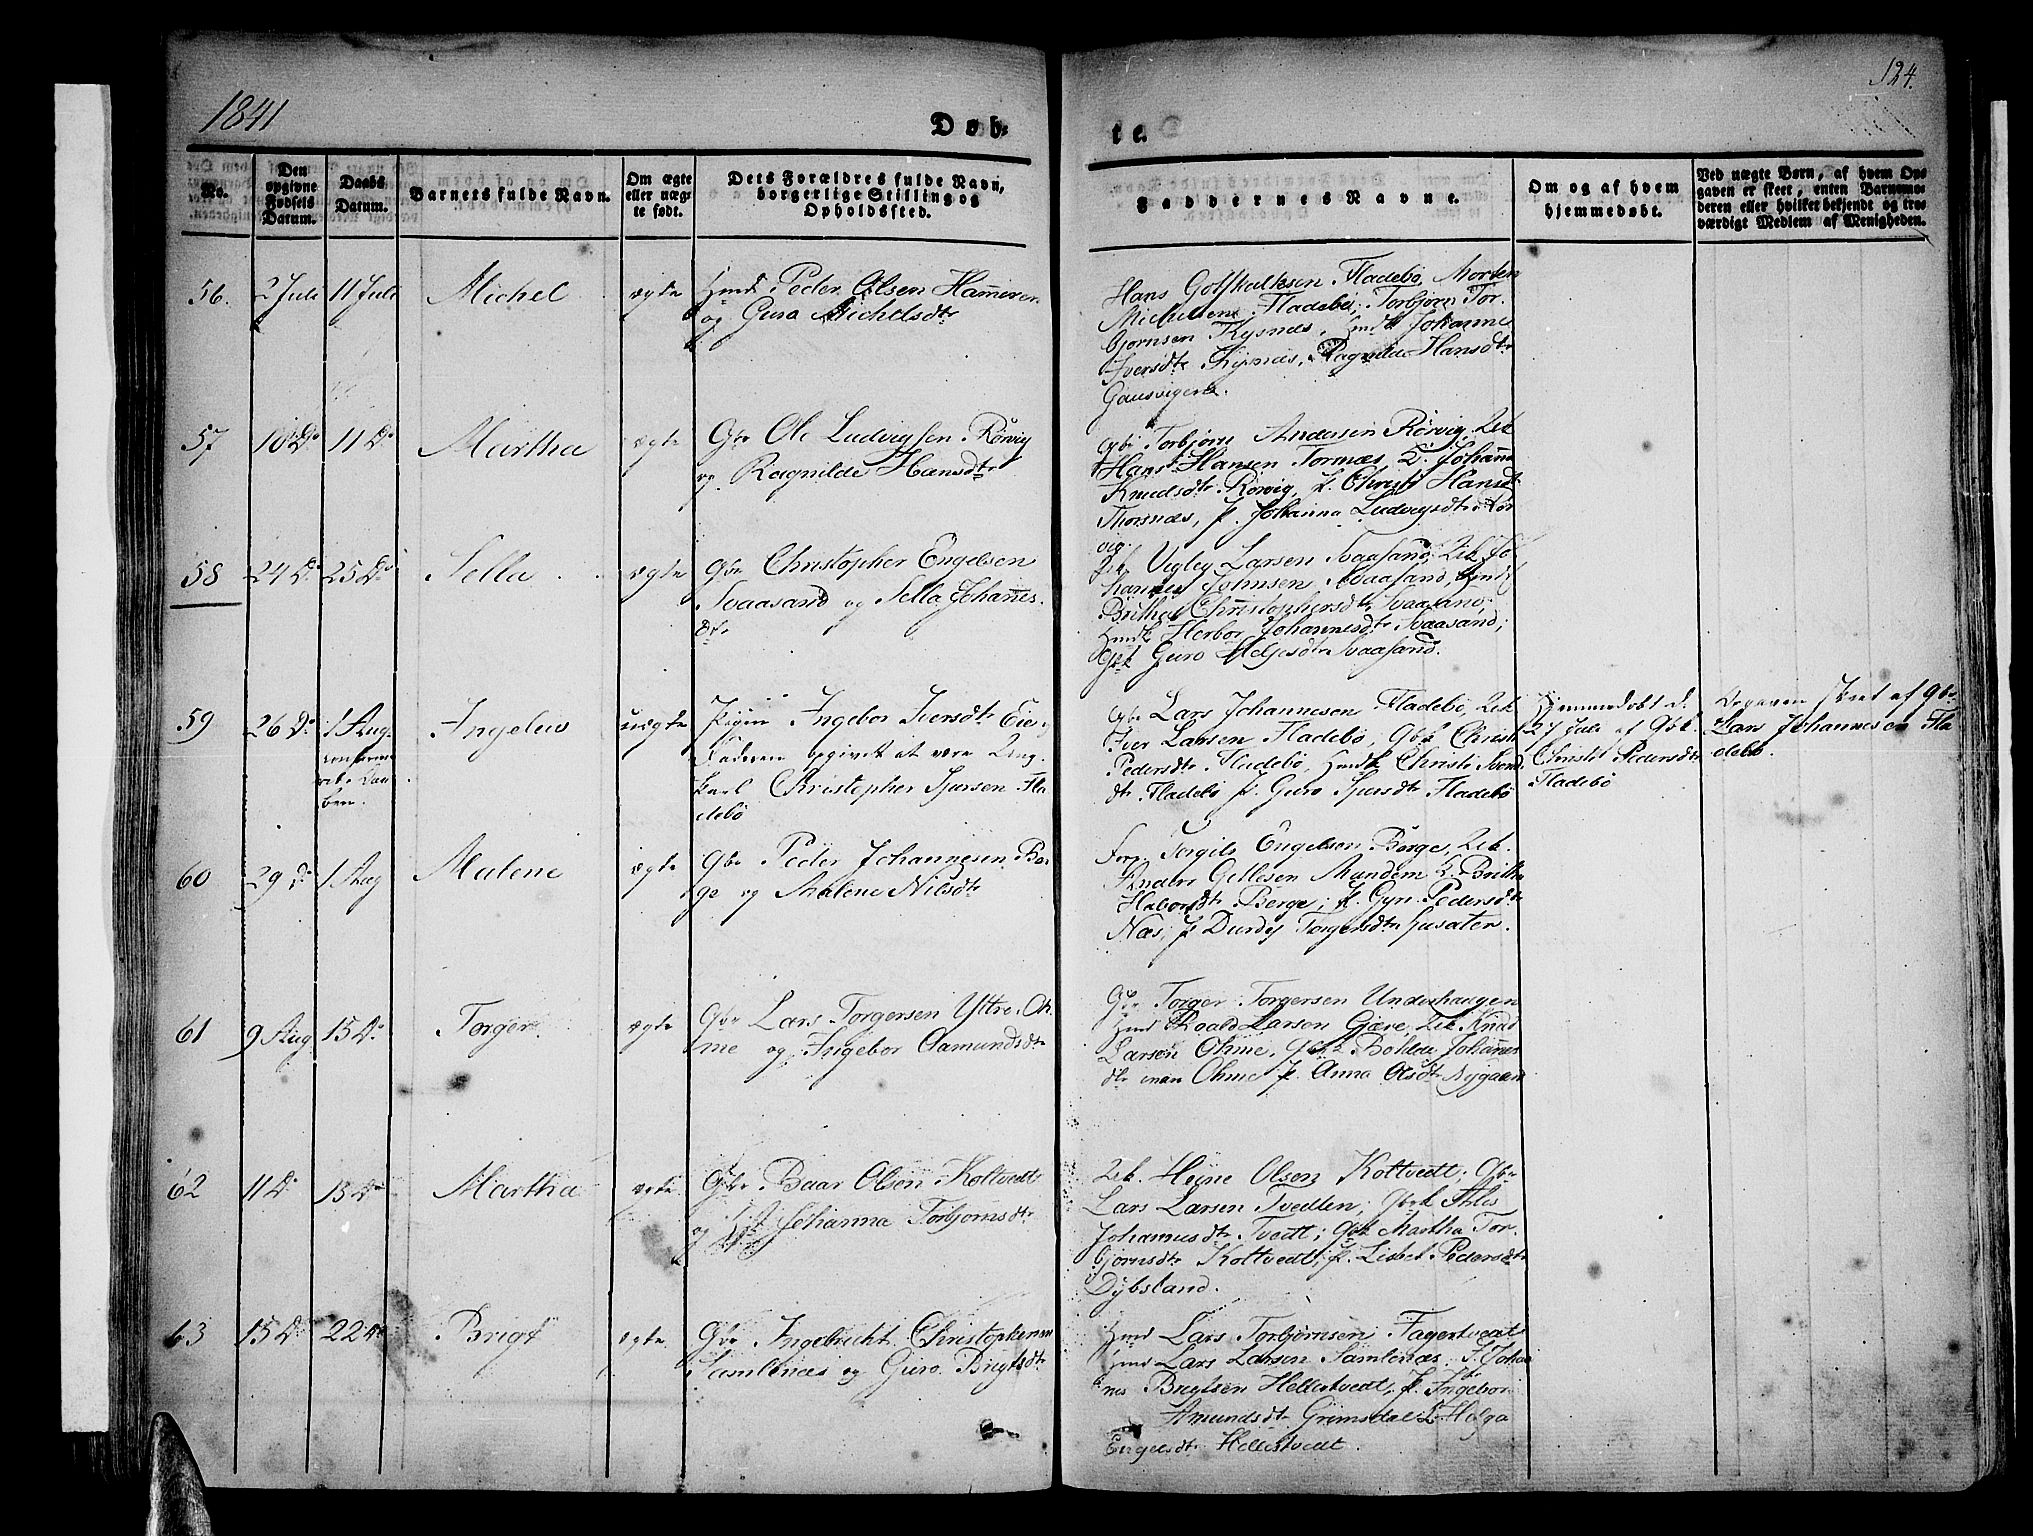 1841
Døb-
te.
124.
No.
Den opgivne Fødsels Datum.
Daabs Datum.
Barnets fulde Navn.
Om ægte eller uægte født.
Dets Forældres fulde Navn, borgerlige Stilling og Opholdsfted.
Faddernes Navne.
Om og af hvem hjemmedøbt.
Ved uægte Børn, af hvem Opgaven er skeet, enten Barnemoderen eller hvilket bekjendt og troværdigt Medlem af Menigheden.
56. 2 Juli 11 Juli Michel ægte Huusm Peder Olsen Hammeren
og Guro Michelsdtr
Hans Gotskalksen Fladebø, Morten
Michelsen Fladebø, Torbjørn Tor-
bjørnsen Kysnæs, Johanne
Iversdtr Kysnæs, Ragnilde Hansdtr
Gausvigen.
57 10 Do 11 Do Martha ægte Gbr Ole Ludvigsen Rørvig
og Ragnilde Hansdtr
Gbr Torbjørn Andersen Rørvig, Uk
Hans Hansen Tornæs, K. Johanna
Knudsdtr Rørvig, p. Christi Hansdtr
Thorsnæs, p. Johanna Ludvigsdtr Rør
vig.
58 24 Do 25 Do Sella ægte Gbr Christopher Engelsen
Svaasand og Sella Johannes-
dtr
Larsen Svaasand, Uk Jo-
hannes Johnsen Svaasand,
Britha Christophersdtr Svaasand,
Herbor Johannesdtr Svaasand,
Guro Helgesdtr Svaasand.
59 26 Do 1 Aug. uægte Pigen Ingebor Iversdtr Eie,
confirme-
ret Daa-
ben.
Faderen opgivet at være Ung-
karl Christopher Sjursen Fla
debø
Gbr Lars Johannesen Fladebø, Uk
Iver Larsen Fladebø, Gbk Christi
Pedersdtr Fladebø, Christi Svend
dtr Fladebø p. Guro Sjursdtr Fladebø
Hjemmedøbt d.
27 Juli af Gbk.
Christi Pedersdtr
Fladebø
Opgaven skeet af Gbr
Lars Johannesen Fla
debø.
60 29 Do 1 Aug Malene ægte Gbr Peder Johannesen Bør-
ge og Malene Nilsdtr
Torgils Engelsen Børge, Uk.
Anders Gellesen Mundem K. Brith
Haborsdtr Børge; p. Gyri Pedersdtr
Næs; p Durdey Torgersdtr Husater.
61 9 Aug 15 Do Torger ægte Gbr Lars Torgersen Yttre Oh-
me og Ingebor Aamundsdtr
Gbr Torger Torgersen Underhaugen
Huusm Roald Larsen Gjære, Uk. Knud
Larsen Ohme, Gbk Bolda Johannes
dtr Ohme p. Anna Olsdtr Nygaard
62 11 Do 15 Do Martha ægte Gbr Baar Olsen Koltvedt
og Johanna Torbjørnsdtr
Uk. Heine Olsen Koltvedt, Gbr
Lars Larsen Tvedten, Gbk Ahlis
Johannesdtr Tvedt; Gbk Martha Tor-
bjørnsdtr Koltvedt, p. Lisbet Pedersdtr
Dybsland.
63 15 Do 22 Do Brigt ægte Gbr Ingebricht Christophersen
Samlenæs og Guro Brigtsdtr
Huusm Lars Torbjørnsen Fagertvedt
Huusm Lars Larsen Samlenæs, Johan
nes Brigtsen Hellestvedt, p. Ingebor
Amundsdtr Grimsdal p. Helga
Engelsdtr Hellestvedt.